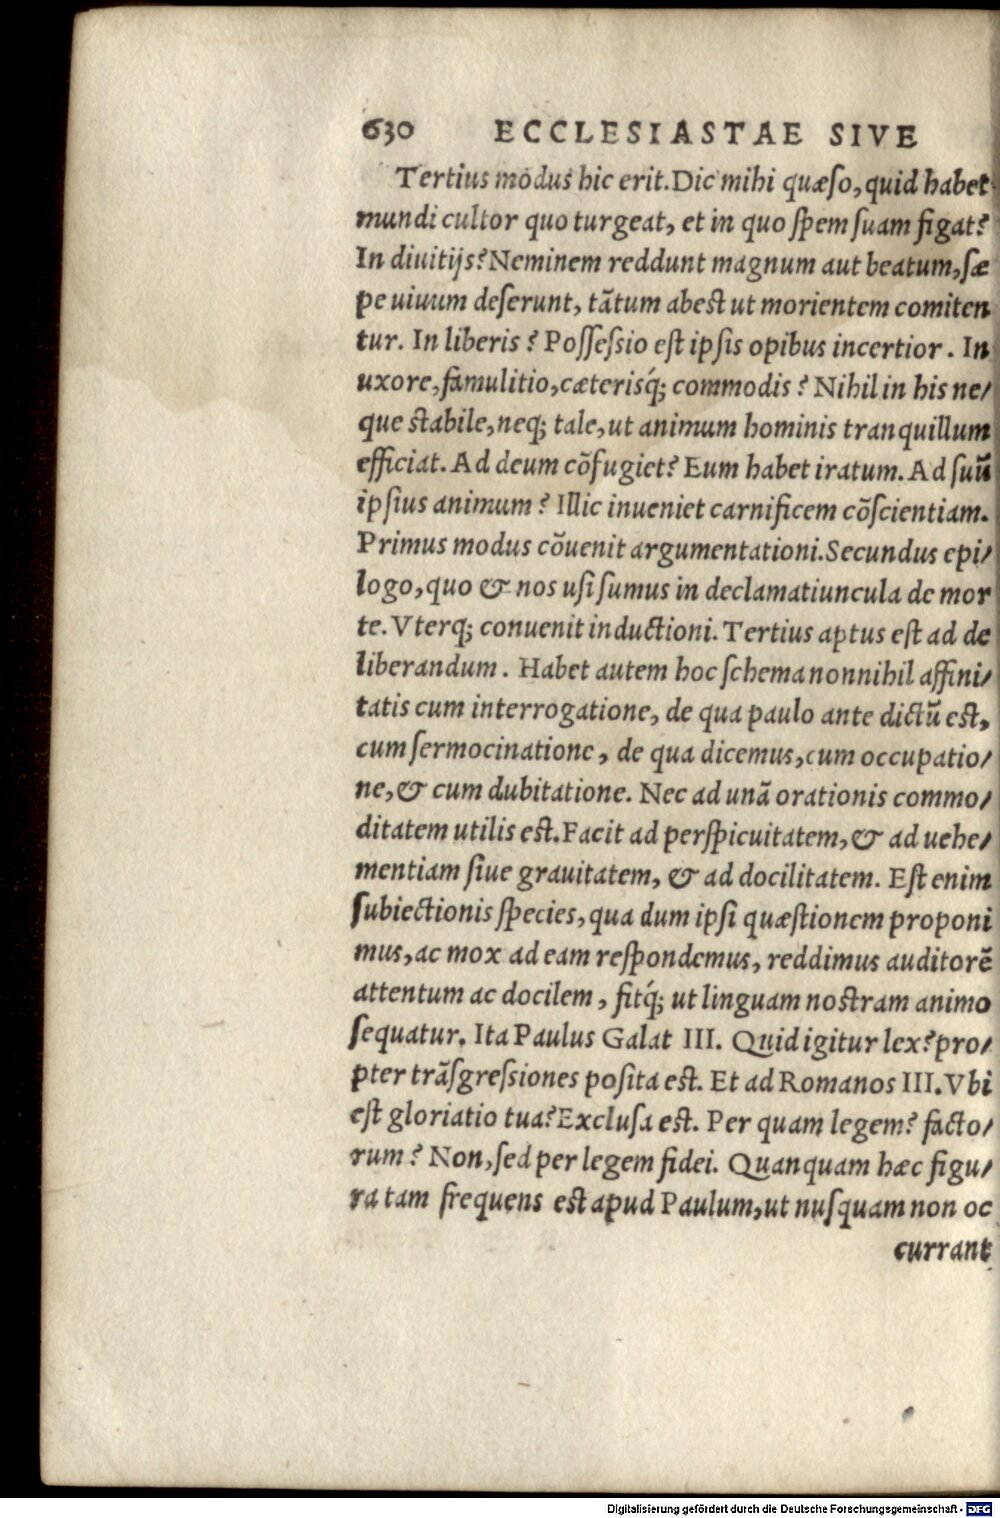 630 ECCLESIASTAE SIVE
Tertius modus hic erit. Dic mihi quæſo, quid habet
mundi cultor quo turgeat, et in quo ſpem ſuam figat?
In diuitijs? Neminem reddunt magnum aut beatum, ſæ
pe uiuum deſerunt, tãtum abest ut morientem comiten
tur. In liberis? Poſſeſsio eſt ipſis opibus incertior. In
uxore, famulitio, cæterisq́; commodis? Nihil in his ne/
que stabile, neq; tale, ut animum hominis tranquillum
efficiat. Ad deum cõfugiet? Eum habet iratum. Ad ſuũ
ipſius animum? Illic inueniet carnificem cõſcientiam.
Primus modus cõuenit argumentationi. Secundus epi/
logo, quo & nos uſi ſumus in declamatiuncula de mor
te. Vterq; conuenit inductioni. Tertius aptus eſt ad de
liberandum. Habet autem hoc ſchema nonnihil affini/
tatis cum interrogatione, de qua paulo ante dictũ est,
cum ſermocinatione, de qua dicemus, cum occupatio/
ne, & cum dubitatione. Nec ad unã orationis commo/
ditatem utilis est. Facit ad perſpicuitatem, & ad uehe/
mentiam ſiue grauitatem, & ad docilitatem. Eſt enim
ſubiectionis ſpecies, qua dum ipſi quæſtionem proponi
mus, ac mox ad eam reſpondemus, reddimus auditorẽ
attentum ac docilem, fitq́; ut linguam nostram animo
ſequatur. Ita Paulus Galat III. Quid igitur lex? pro/
pter trãſgreſsiones poſita est. Et ad Romanos III. Vbi
eſt gloriatio tua? Excluſa est. Per quam legem? facto/
rum? Non, ſed per legem fidei. Quanquam hæc figu/
ra tam frequens est apud Paulum, ut nuſquam non oc
currant
Digitalisierung gefördert durch die Deutsche Forschungsgemeinschaft - DFG